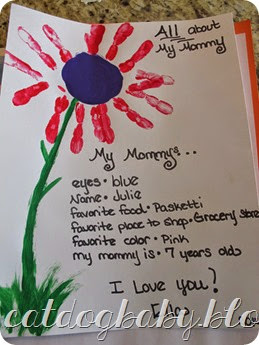 All about
My Mommy
My Mommy's..
eyes • blue
Name • Julie
favorite food • Pasketti
favorite place to shop • Grocery Store
favorite color • Pink
my mommy is • 7 years olds
I Love you?
catdogbaby.blo